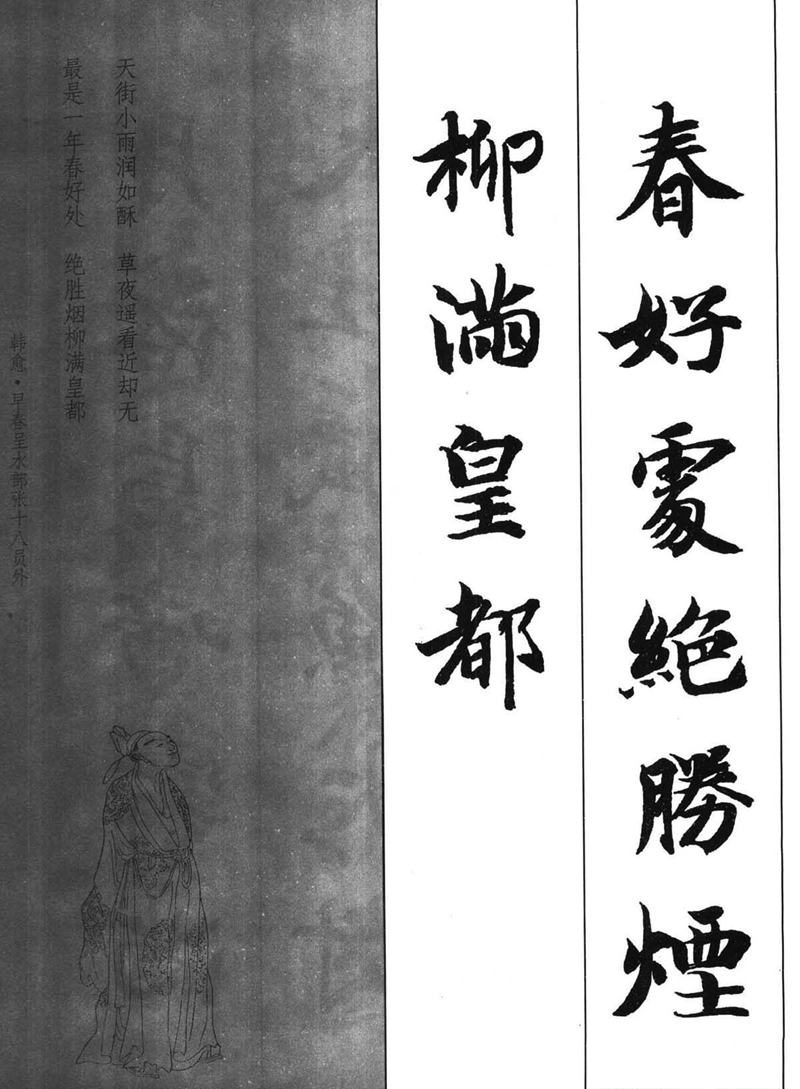 春好處絕勝煙
柳滿皇都
天街小雨润如酥 草夜遥看近却无
最是一年春好处 绝胜烟柳满皇都
韩愈·早春呈水部张十八员外